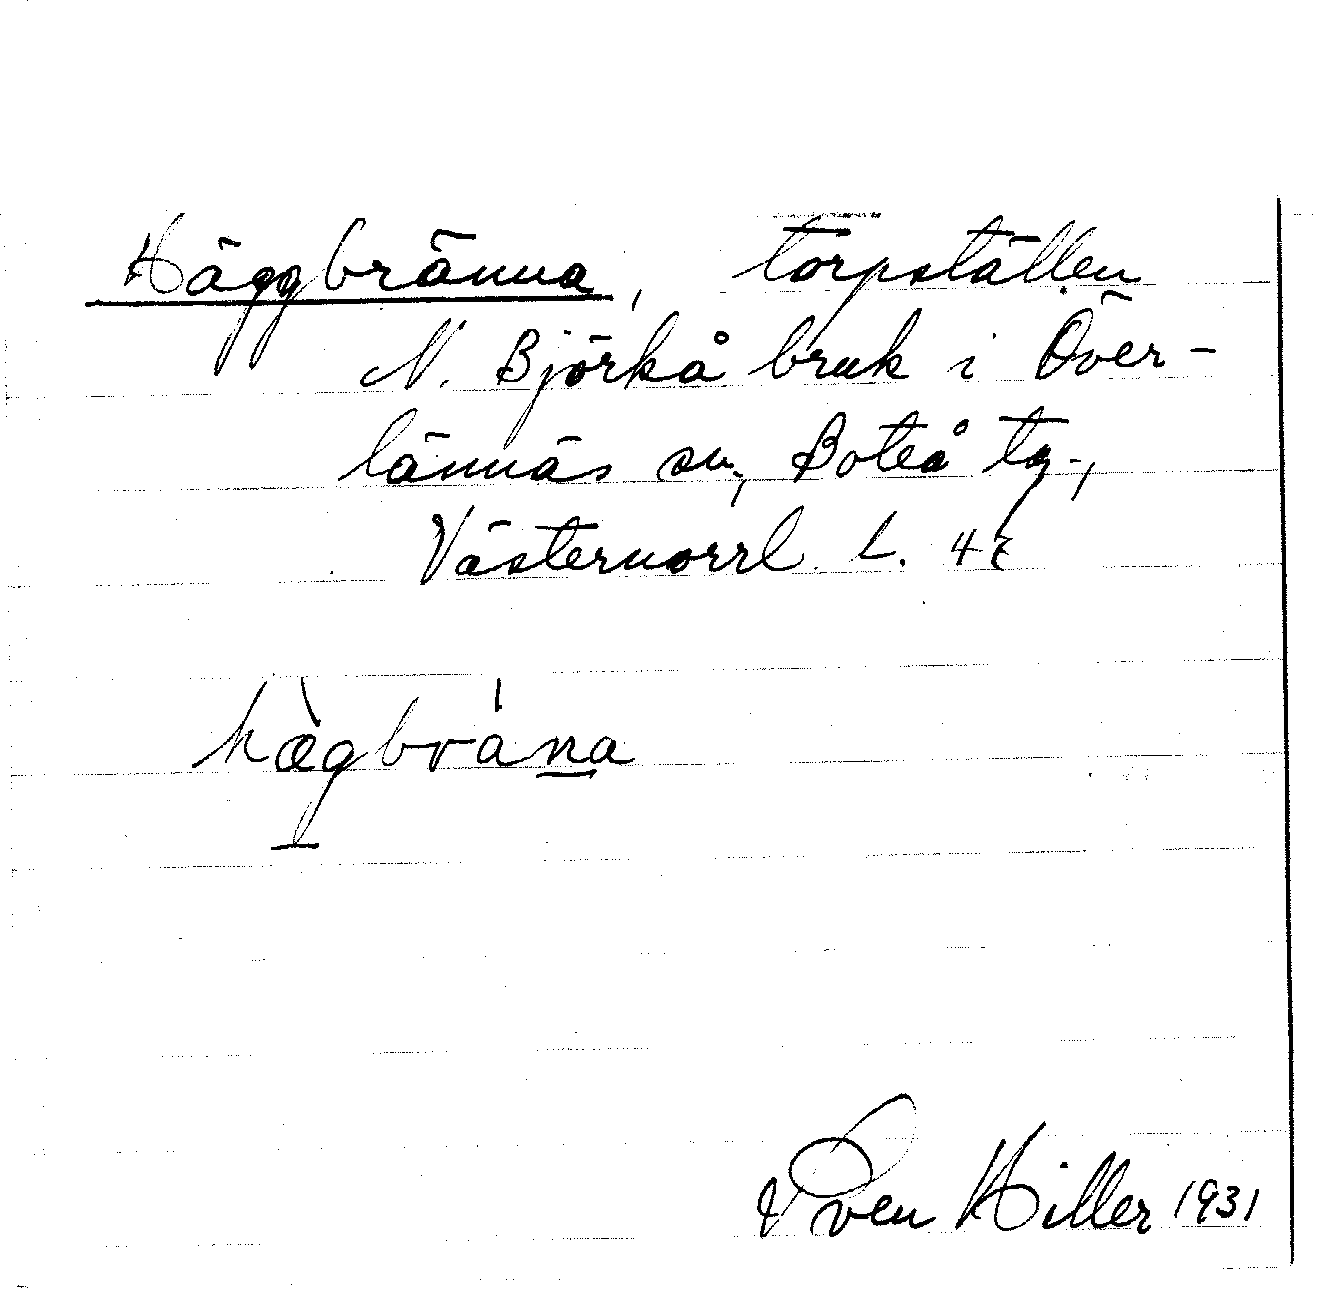 Häggbränna, torpställen
N. Björkå bruk i Över-
lännäs sn, Boteå tg.,
Västernorrl. L. 47
hægbrána
Sven Hiller 1931